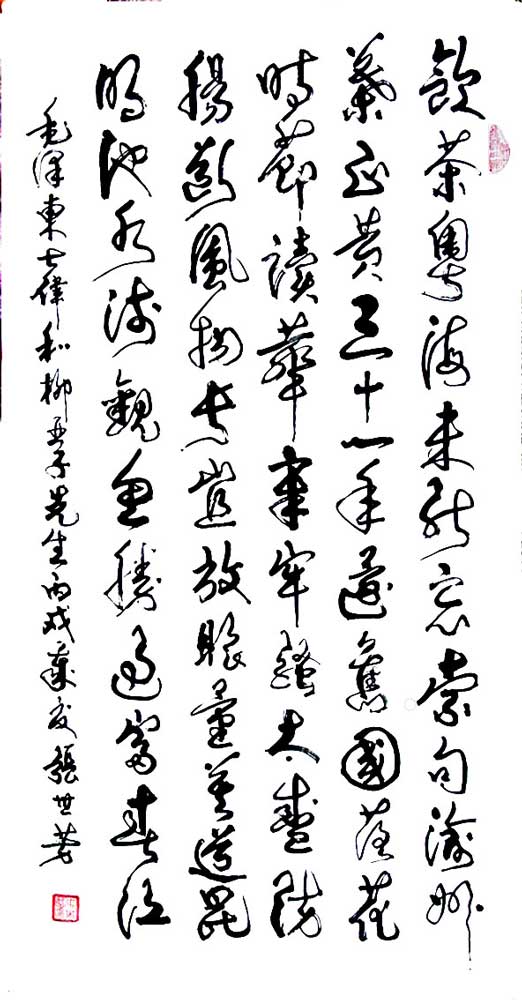 飲茶粵海未能忘索句渝州
葉正黃三十一年還舊國落花
時節讀華章牢騷太盛防
腸斷風物長宜放眼量莫道昆
明池水淺觀魚勝過富春江
毛澤東七律和柳亞子先生丙戌張世芳